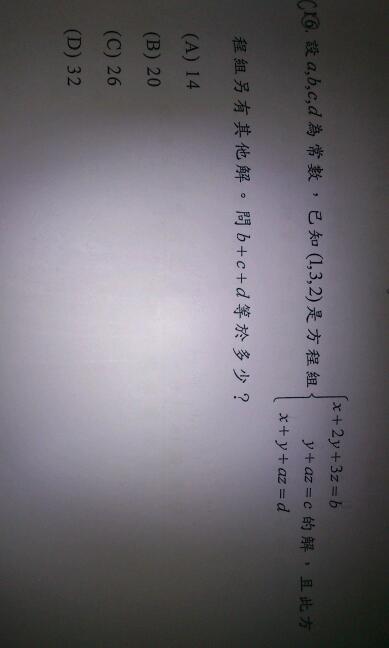 16. 設 a,b,c,d 為常數，已知 (1,3,2) 是方程組 { x+2y+3z=b
y+az=c 的解，且此方
x+y+az=d
程組另有其他解。問 b+c+d 等於多少？
(A) 14
(B) 20
(C) 26
(D) 32